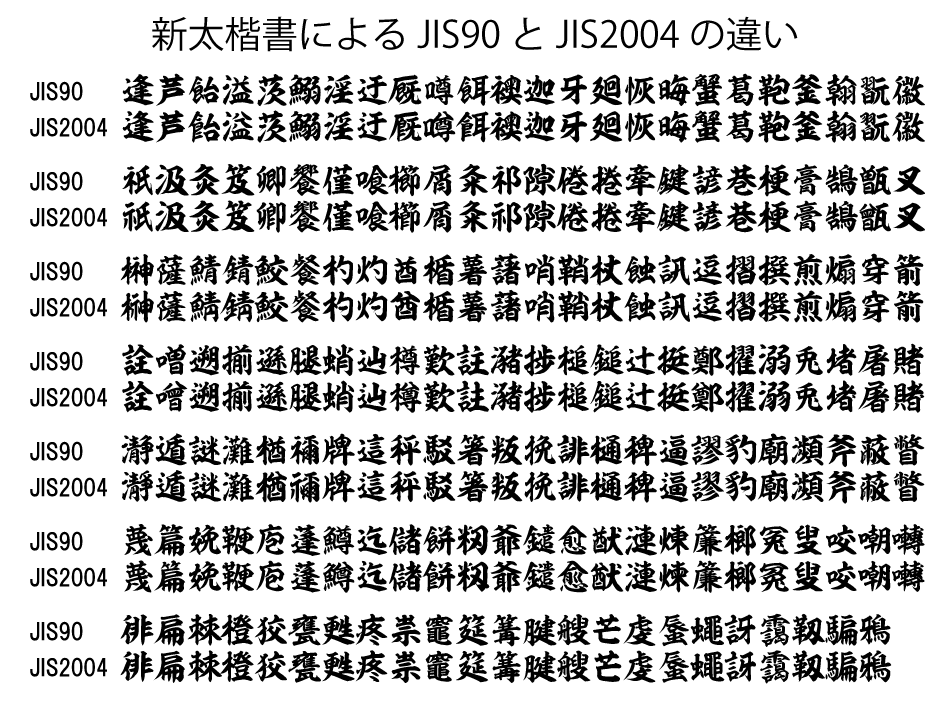 新太楷書によるJIS90とJIS2004の違い
JIS90 逢芦飴溢茨鰯淫迂厩噂餌襖迦牙廻恢晦蟹葛鞄釜翰翫徽
JIS2004 逢芦飴溢茨鰯淫迂厩噂餌襖迦牙廻恢晦蟹葛鞄釜翰翫徽
JIS90 祇汲灸笈卿饗僅喰櫛屑粂祁隙倦捲牽鍵諺巷梗膏鵠甑叉
JIS2004 祇汲灸笈卿饗僅喰櫛屑粂祁隙倦捲牽鍵諺巷梗膏鵠甑叉
JIS90 榊薩鯖錆鮫餐杓灼酋楯薯藷哨鞘杖蝕訊逗摺撰煎煽穿箭
JIS2004 榊薩鯖錆鮫餐杓灼酋楯薯藷哨鞘杖蝕訊逗摺撰煎煽穿箭
JIS90 詮噌遡揃遜腿蛸辿樽歎註瀦捗槌鎚辻挺鄭擢溺兎堵屠賭
JIS2004 詮噌遡揃遜腿蛸辿樽歎註瀦捗槌鎚辻挺鄭擢溺兎堵屠賭
JIS90 瀞遁謎灘楢禰牌這秤駁箸叛挽誹樋稗逼謬豹廟瀕斧蔽瞥
JIS2004 瀞遁謎灘楢禰牌這秤駁箸叛挽誹樋稗逼謬豹廟瀕斧蔽瞥
JIS90 蔑篇娩鞭庖蓬鱒迄儲餅籾爺鑓愈猷漣煉簾榔冤叟咬嘲囀
JIS2004 蔑篇娩鞭庖蓬鱒迄儲餅籾爺鑓愈猷漣煉簾榔冤叟咬嘲囀
JIS90 徘扁棘橙狡甕甦疼祟竈筵篝腱艘芒虔蜃蠅訝靄靱騙鴉
JIS2004 徘扁棘橙狡甕甦疼祟竈筵篝腱艘芒虔蜃蠅訝靄靱騙鴉